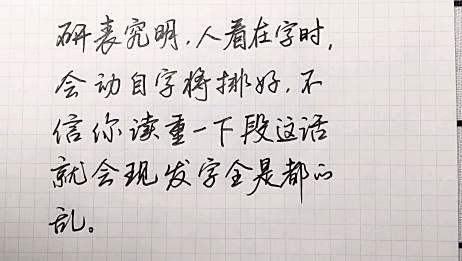 研表究明，人看在字时，
会动自字将排好，不
信你读重一下段这话
就会现发字全是都的
乱。